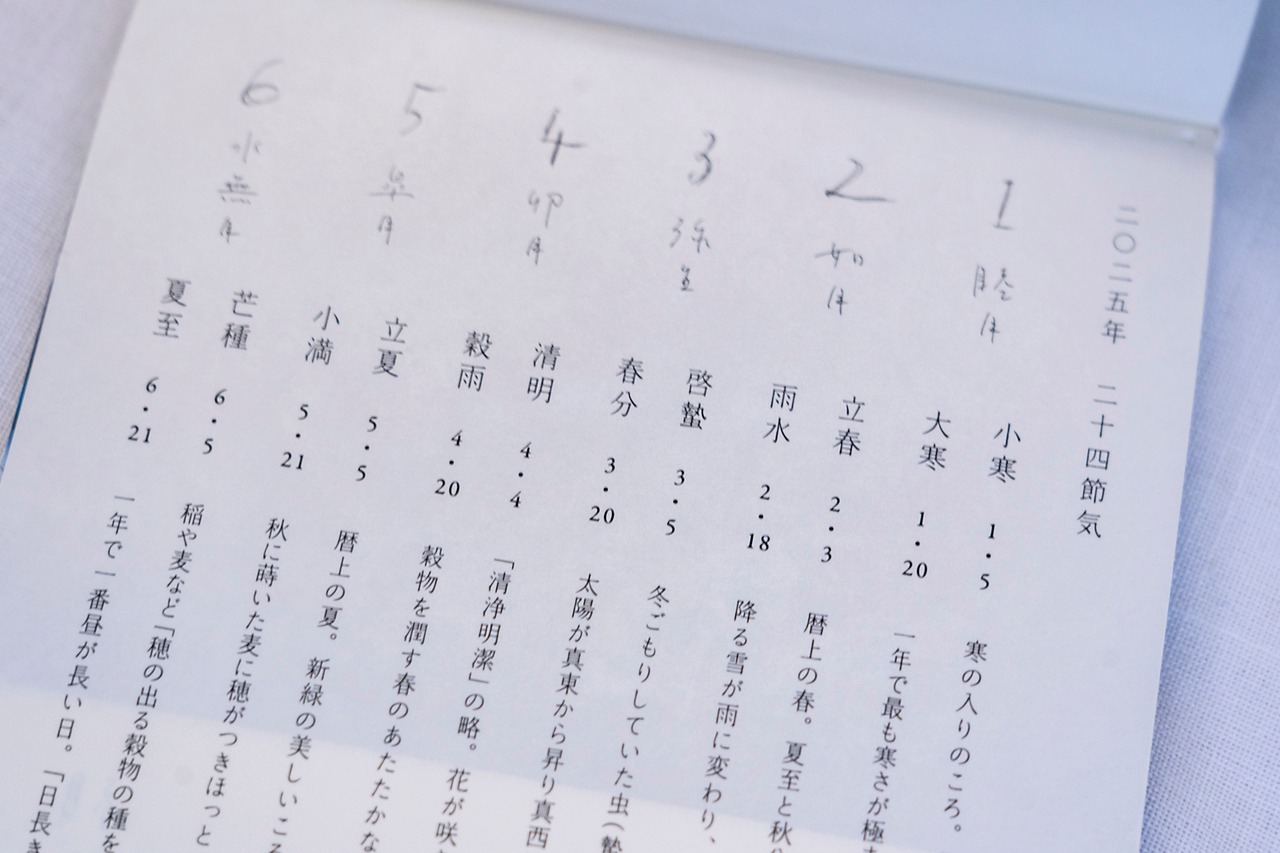 二〇二五年 二十四節気
1 睦月
小寒 1・5 寒の入りのころ。
大寒 1・20 一年で最も寒さが極ま
2 如月
立春 2・3 暦上の春。夏至と秋分
雨水 2・18 降る雪が雨に変わり、
3 弥生
啓蟄 3・5 冬ごもりしていた虫(蟄
春分 3・20 太陽が真東から昇り真西
4 卯月
清明 4・4 「清浄明潔」の略。花が咲
穀雨 4・20 穀物を潤す春のあたたかな
5 皐月
立夏 5・5 暦上の夏。新緑の美しいころ
小満 5・21 秋に蒔いた麦に穂がつきほっと
6 水無月
芒種 6・5 稲や麦など「穂の出る穀物の種を
夏至 6・21 一年で一番昼が長い日。「日長き